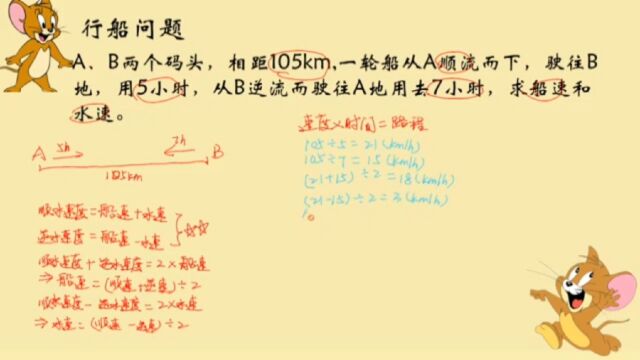 行船问题
A、B两个码头，相距105km,一轮船从A顺流而下，驶往B
地，用5小时，从B逆流而驶往A地用去7小时，求船速和
水速。
速度×时间=路程
5h 7h
A B
105km
105÷5=21(km/h)
105÷7=15(km/h)
(21+15)÷2=18(km/h)
(21-15)÷2=3(km/h)
顺水速度=船速+水速
逆水速度=船速-水速
顺水速度+逆水速度=2×船速
⇒船速=(顺速+逆速)÷2
顺水速度-逆水速度=2×水速
⇒水速=(顺速-逆速)÷2